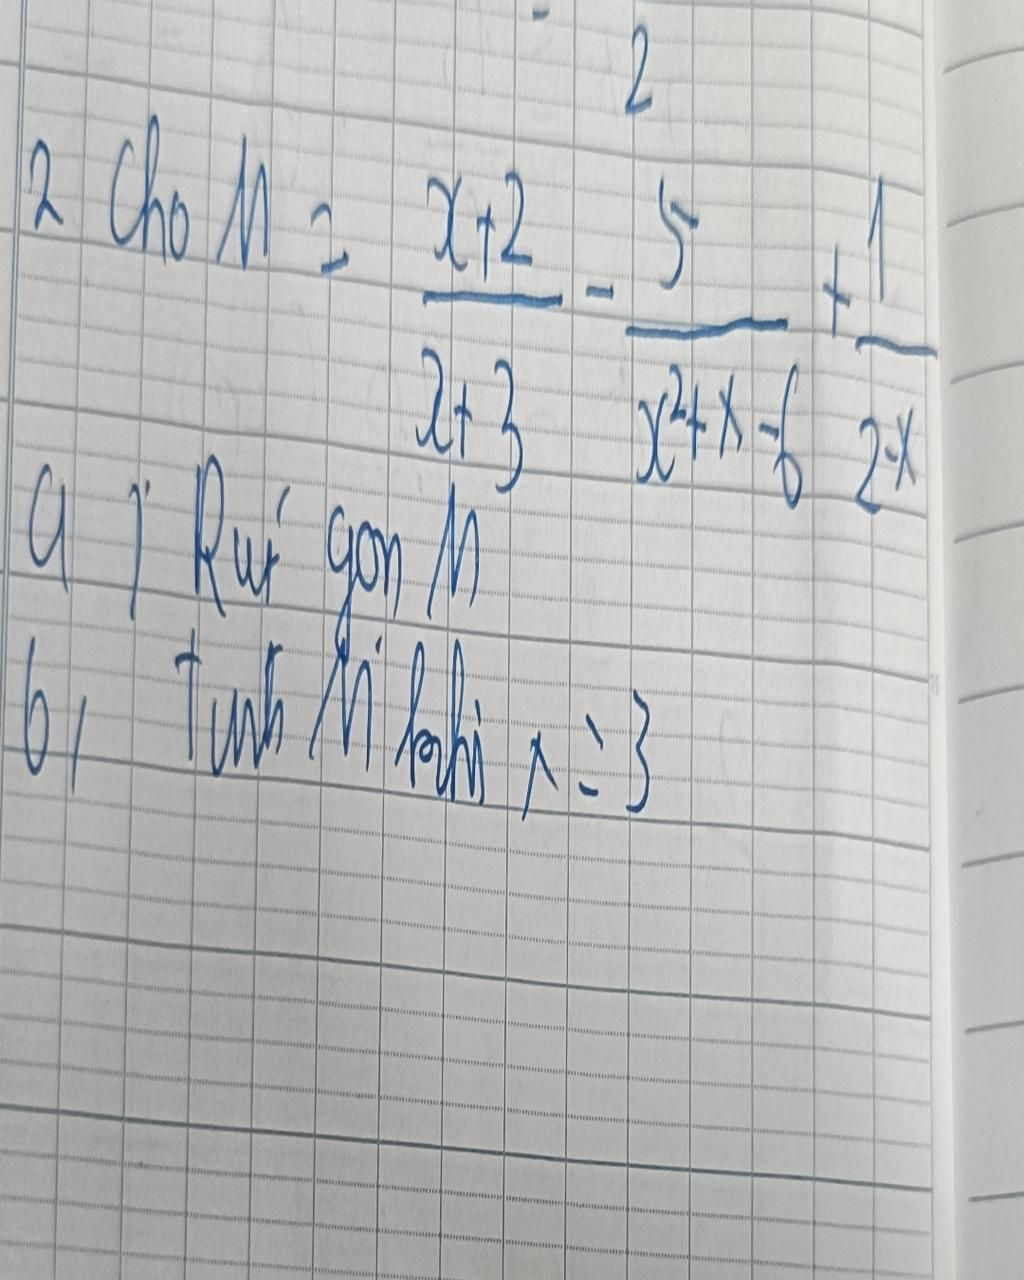 2
2 Cho M = x+2/x+3 - 5/x²+x-6 + 1/2-x
a) Rút gọn M
b, Tính M khi x = 3